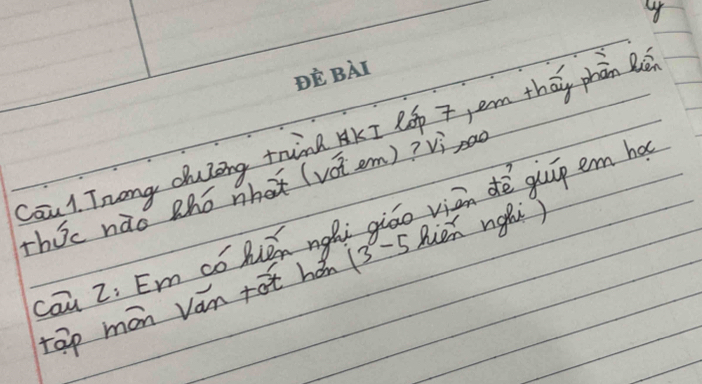 ly
ĐỀ BÀI
Câu 1. Trong chương trình HKI lớp 7, em thấy phần kiến
thức nào khó nhất (với em)? Vì sao
Câu 2: Em có kiến nghị giáo viên để giúp em học
tập môn Văn tốt hơn (3-5 kiến nghị)